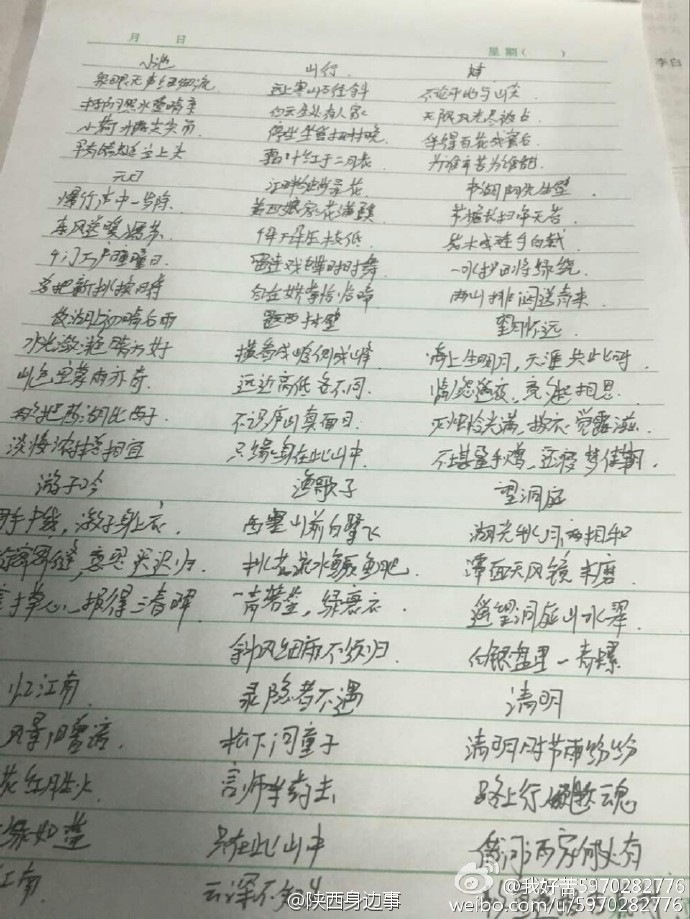 月 日 星期( )
李白
小池
泉眼无声惜细流
树阴照水爱晴柔
小荷才露尖尖角
早有蜻蜓立上头
元日
爆竹声中一岁除.
春风送暖入屠苏.
千门万户曈曈日
总把新桃换旧符
饮湖上初晴后雨
水光潋滟晴方好
山色空蒙雨亦奇.
欲把西湖比西子
淡妆浓抹总相宜
游子吟
手中线,游子身上衣.
密密缝,意恐迟迟归.
寸草心,报得三春晖
忆江南.
风景旧曾谙.
花红胜火
绿如蓝
江南.
山行.
远上寒山石径斜
白云生处有人家
停车坐爱枫林晚.
霜叶红于二月花.
江畔独步寻花.
黄四娘家花满蹊
千朵万朵压枝低.
留连戏蝶时时舞
自在娇莺恰恰啼
题西林壁
横看成岭侧成峰
远近高低各不同.
不识庐山真面目.
只缘身在此山中
渔歌子
西塞山前白鹭飞
桃花流水鳜鱼肥.
青箬笠,绿蓑衣.
斜风细雨不须归.
寻隐者不遇
松下问童子
言师采药去
只在此山中
云深不知处
蜂.
不论平地与山尖
无限风光尽被占
采得百花成蜜后
为谁辛苦为谁甜
书湖阴先生壁
茅檐长扫净无苔
花木成畦手自栽
一水护田将绿绕.
两山排闼送青来
望月怀远.
海上生明月,天涯共此时.
情人怨遥夜,竟夕起相思.
灭烛怜光满,披衣觉露滋.
不堪盈手赠,还寝梦佳期.
望洞庭
湖光秋月两相和
潭面无风镜未磨
遥望洞庭山水翠
白银盘里一青螺
清明
清明时节雨纷纷
路上行人欲断魂
借问酒家何处有
@陕西身边事
@我好苦5970282776
weibo.com/u/5970282776